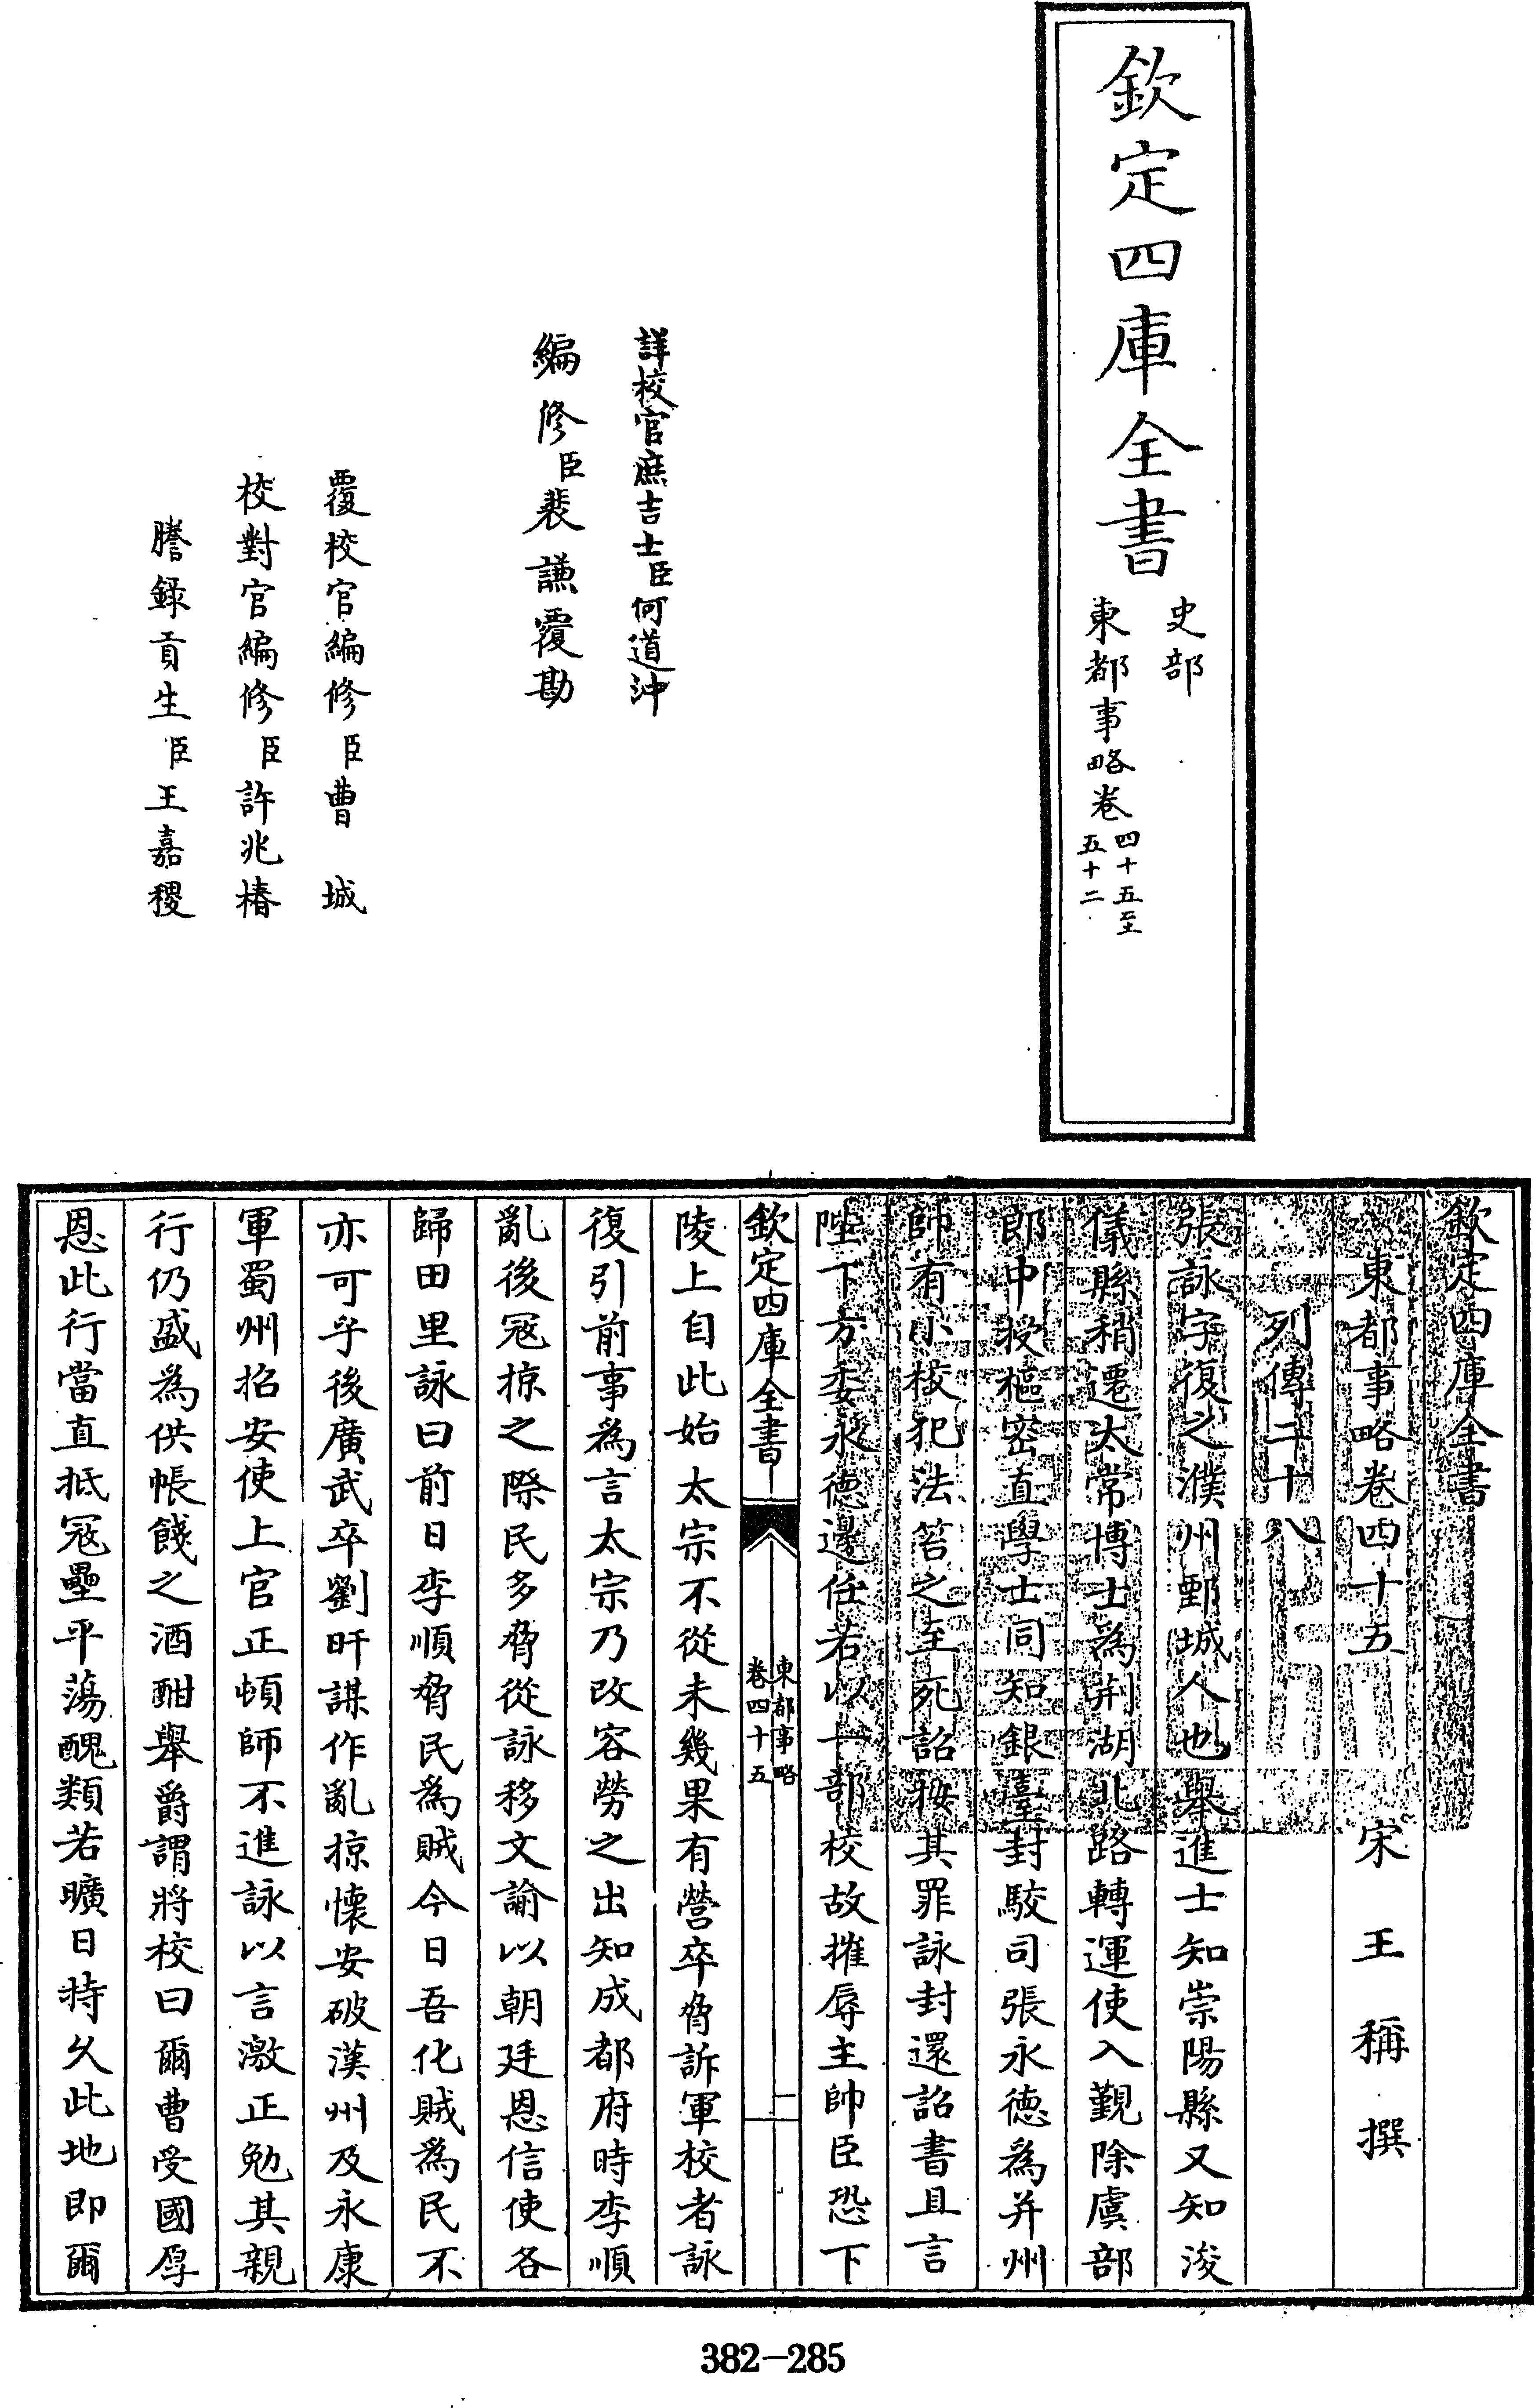 欽定四庫全書
史部
東都事略卷
四十五至
五十二
詳校官庶吉士臣何道沖
編修臣裴謙覆勘
覆校官編修臣曹城
校對官編修臣許兆椿
謄錄貢生臣王嘉稷
欽定四庫全書
東都事略卷四十五 宋 王稱 撰
列傳二十八
張詠字復之濮州鄄城人也舉進士知崇陽縣又知浚
儀縣稍遷太常博士為荆湖北路轉運使入覲除虞部
郎中授樞密直學士同知銀臺封駮司張永德為并州
帥有小校犯法笞之至死詔按其罪詠封還詔書且言
陛下方委永德邊任若以一部校故摧辱主帥臣恐下
欽定四庫全書
東都事略
卷四十五
二
陵上自此始太宗不從未幾果有營卒脅訴軍校者詠
復引前事為言太宗乃改容勞之出知成都府時李順
亂後冦掠之際民多脅從詠移文諭以朝廷恩信使各
歸田里詠曰前日李順脅民為賊今日吾化賊為民不
亦可乎後廣武卒劉旰謀作亂掠懷安破漢州及永康
軍蜀州招安使上官正頓師不進詠以言激正勉其親
行仍盛為供帳餞之酒酣舉爵謂將校曰爾曹受國厚
恩此行當直抵冦壘平蕩醜類若曠日持久此地即爾
382-285